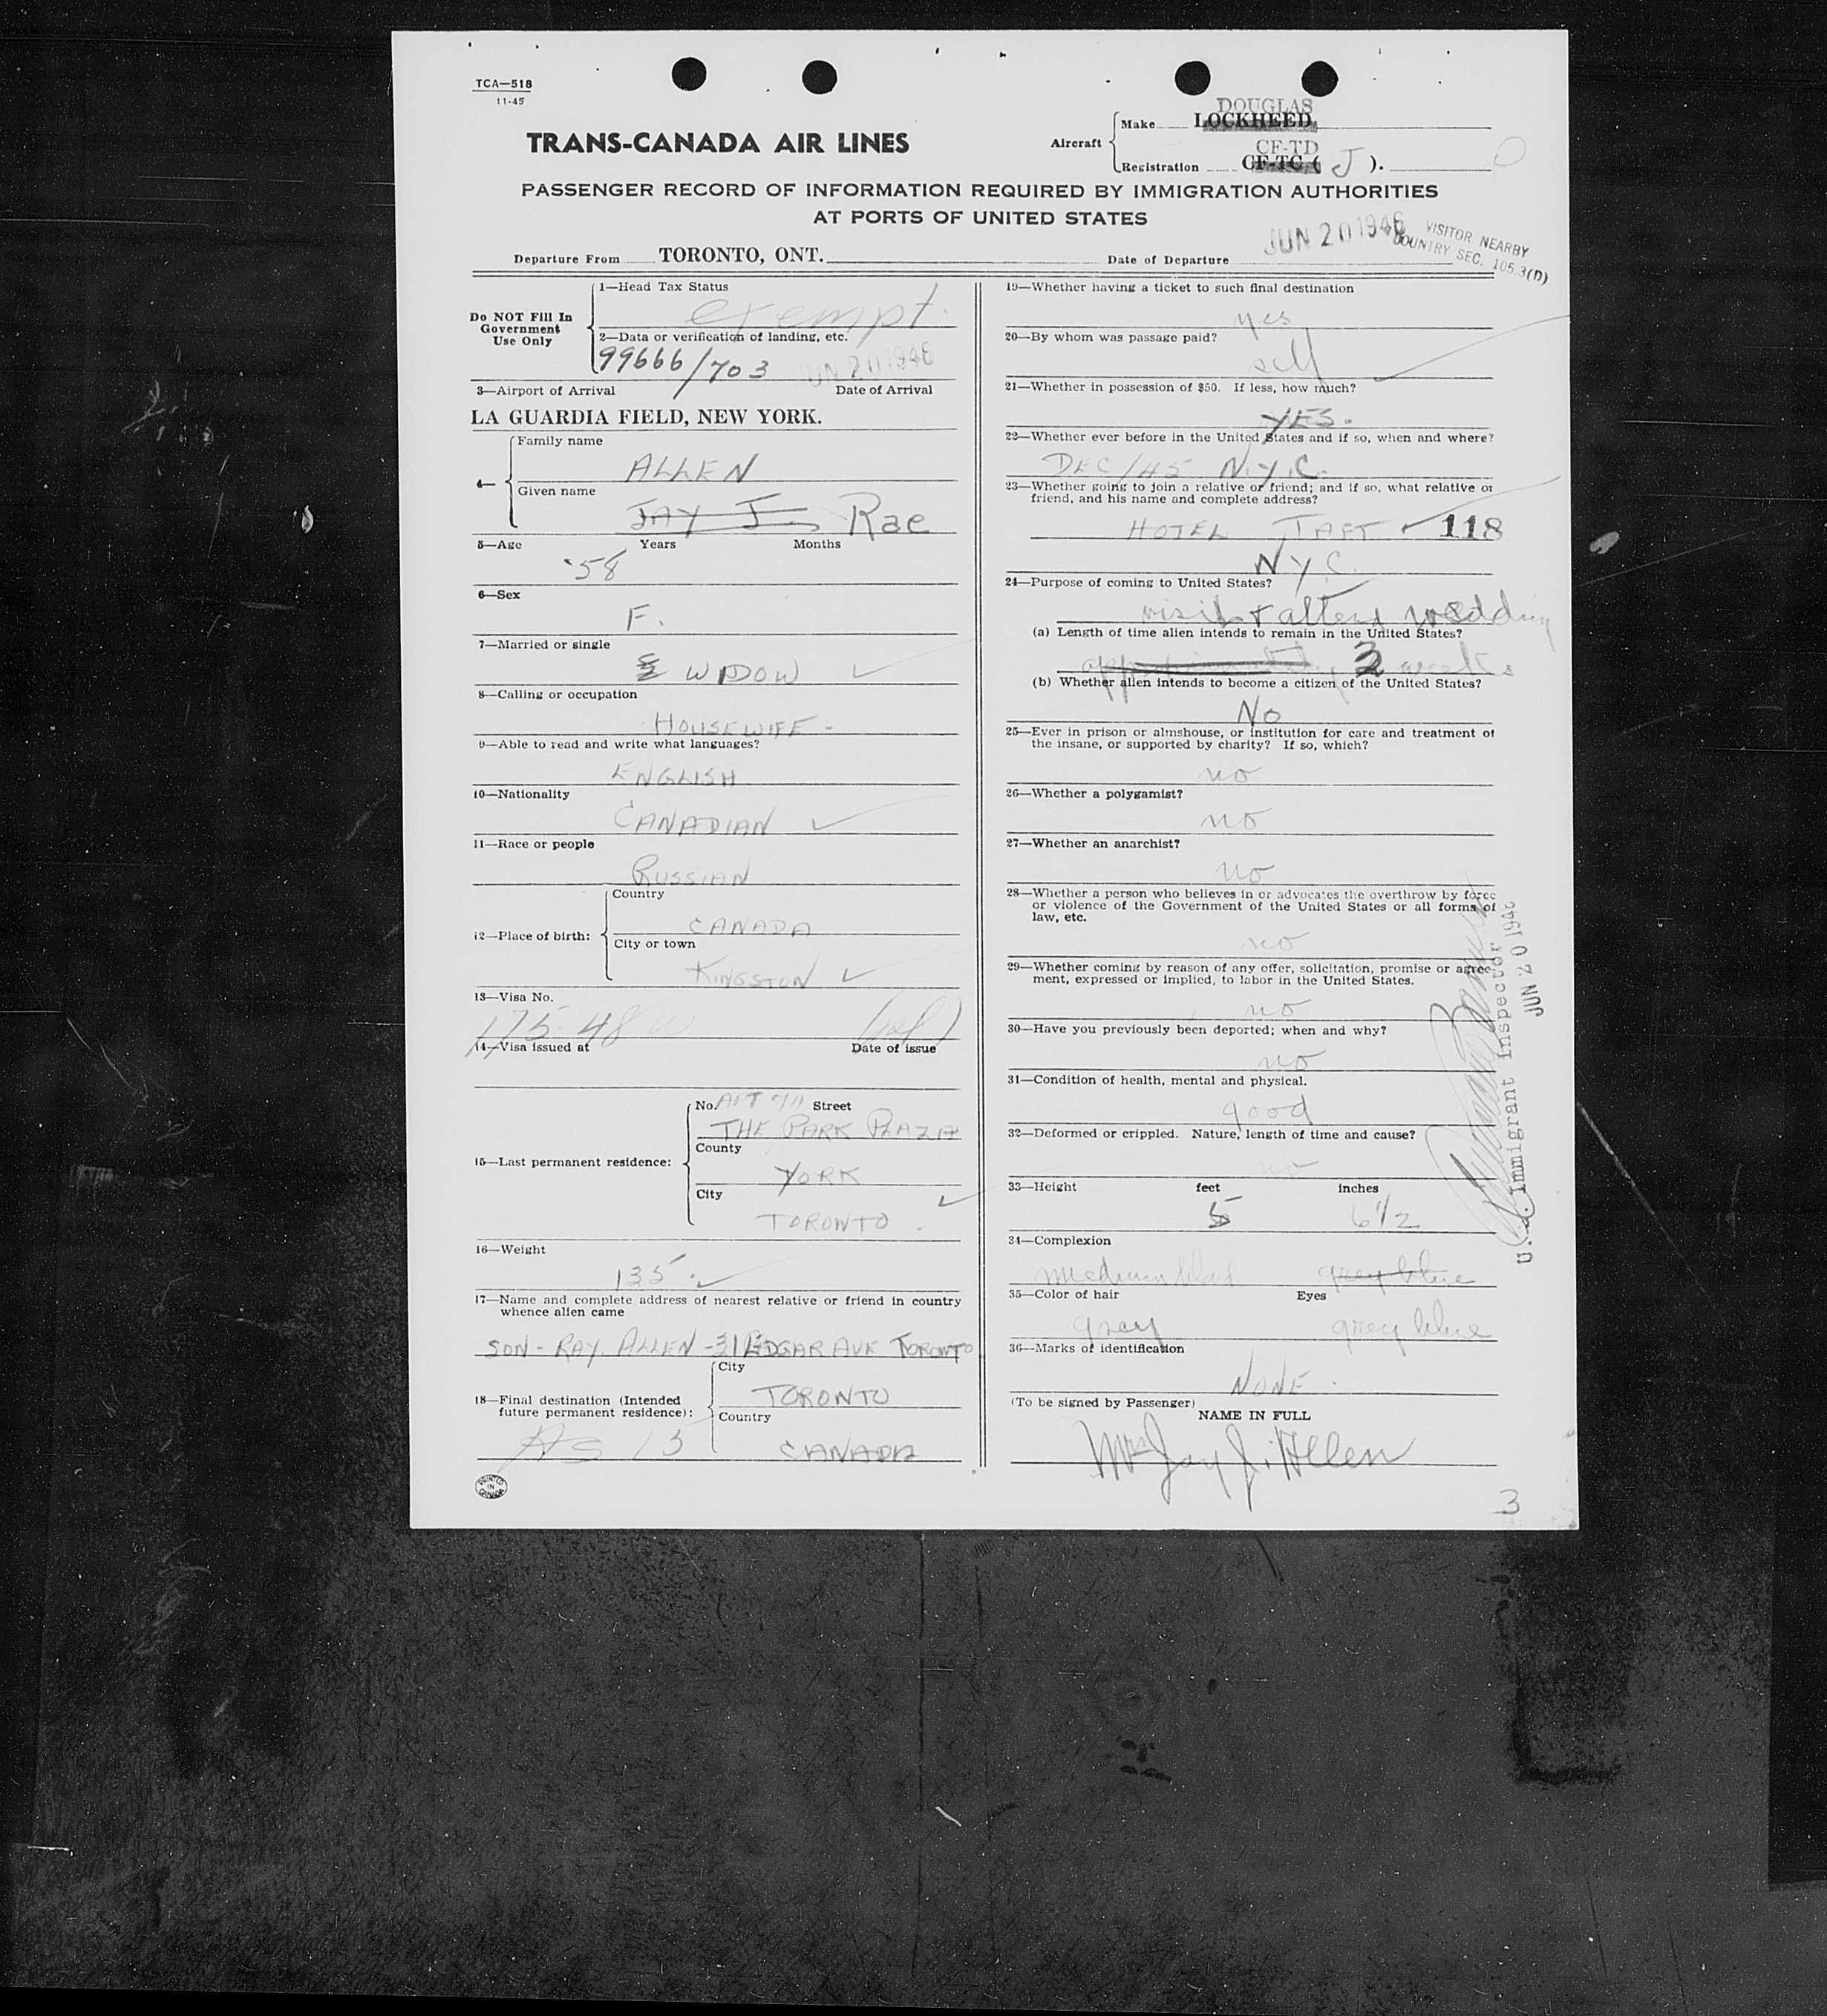 TCA—518
11-45
TRANS-CANADA AIR LINES
DOUGLAS
Aircraft
Make LOCKHEED
CF-TD
Registration CF-TC ( J ).
PASSENGER RECORD OF INFORMATION REQUIRED BY IMMIGRATION AUTHORITIES
AT PORTS OF UNITED STATES
JUN 20 1946
VISITOR NEARBY
COUNTRY SEC. 105.3(D)
Departure From TORONTO, ONT.
Date of Departure
Do NOT Fill In
Government
Use Only
1—Head Tax Status
exempt.
2—Data or verification of landing, etc.
99666/703 JUN 20 1946
3—Airport of Arrival Date of Arrival
LA GUARDIA FIELD, NEW YORK.
4—
Family name
ALLEN
Given name
JAY J. Rae
5—Age Years Months
58
6—Sex
F.
7—Married or single
WIDOW
8—Calling or occupation
HOUSEWIFE -
9—Able to read and write what languages?
ENGLISH
10—Nationality
CANADIAN
11—Race or people
RUSSIAN
12—Place of birth:
Country
CANADA
City or town
KINGSTON
13—Visa No.
175-48
14—Visa issued at Date of issue
15—Last permanent residence:
No. 711 Street
THE PARK PLAZA
County
YORK
City
TORONTO.
16—Weight
135
17—Name and complete address of nearest relative or friend in country
whence alien came
SON - RAY. ALLEN - 31 EDGAR AVE TORONTO
18—Final destination (Intended
future permanent residence):
City
TORONTO
Country
CANADA
AS 13
PRINTED
IN
CANADA
19—Whether having a ticket to such final destination
yes
20—By whom was passage paid?
self
21—Whether in possession of $50. If less, how much?
YES.
22—Whether ever before in the United States and if so, when and where?
DEC/45 N.Y.C.
23—Whether going to join a relative or friend; and if so, what relative or
friend, and his name and complete address?
HOTEL TAFT 118
N.Y.C.
24—Purpose of coming to United States?
visit + attend wedding
(a) Length of time alien intends to remain in the United States?
approximately 2 weeks
(b) Whether alien intends to become a citizen of the United States?
No
25—Ever in prison or almshouse, or institution for care and treatment of
the insane, or supported by charity? If so, which?
no
26—Whether a polygamist?
no
27—Whether an anarchist?
no
28—Whether a person who believes in or advocates the overthrow by force
or violence of the Government of the United States or all forms of
law, etc.
no
29—Whether coming by reason of any offer, solicitation, promise or agree-
ment, expressed or implied, to labor in the United States.
no
30—Have you previously been deported; when and why?
no
31—Condition of health, mental and physical.
good
32—Deformed or crippled. Nature, length of time and cause?
no
33—Height feet inches
5 6 1/2
34—Complexion
medium grey blue
35—Color of hair Eyes
grey grey blue
36—Marks of identification
NONE.
(To be signed by Passenger)
NAME IN FULL
Mrs Jay J. Allen
3
U. S. Immigrant Inspector
JUN 20 1946